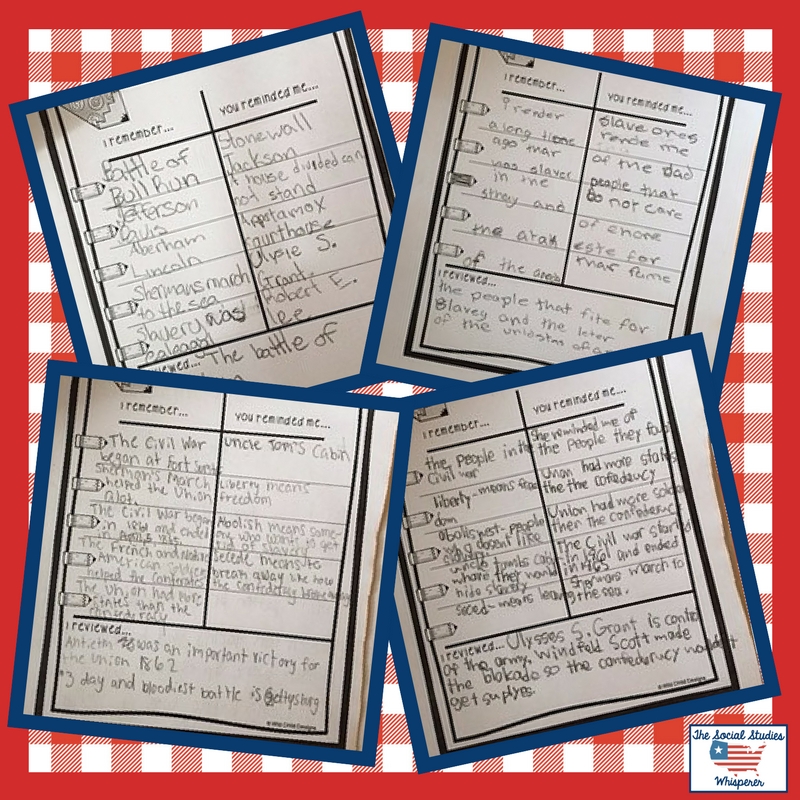 I remember...
you reminded me....
Battle of
Bull Run
Jeferson
Davis
Aberham
Lincoln
Shermans march
to the sea
Slavery was
Stonewall
Jackson
house divided can
not stand
Appatamox
Courthouse
Ulysie S.
Grant.
Robert E.
Lee
The battle of
I remember...
you reminded me....
i render
a long time
ago mar
was slaver
in the
sthey and
the atah
of the
Slave ores
rende me
of the dad
people that
do not care
of enore
este for
mar fame
I reviewed...
the people that fite for
Slavey and the leter
of the
I remember...
you reminded me....
The Civil War
began at Fort Sumter
Sherman's March
helped the Union
alot.
The Civil War began
in 1861 and ended
in April, 1865
The French and
American soldiers
helped the Conferates
The Union had more
states than the
uncle Tom's Cabin
Liberty means
freedom
Abolish means some-
one who wants to get
rid of slavery
Secede means to
break away like how
the confederacy
I reviewed...
Antietm was an important victory for
the union 1862
*3 day and bloodiest battle is Gettysburg
© Wild Child Designs
I remember...
you reminded me....
the people in the
Civil war
liberty-means free
dom
abolisnest-people
who dosent like
uncle tombs cabin
where they would
hide slavery
saced-means leaving
She reminded me of
the people they
Union had more states
the the confeducy
Union had more soldier
then the confederucy
The Civil war started
in 1961 and ended
in 1465
Sherwors march to
the sea.
I reviewed... Ulysses S. Grant is control
of the army. Windfeld Scott made
the blokade so the confederucy wouldn't
get suplyes.
© Wild Child Designs
The Social Studies
Whisperer